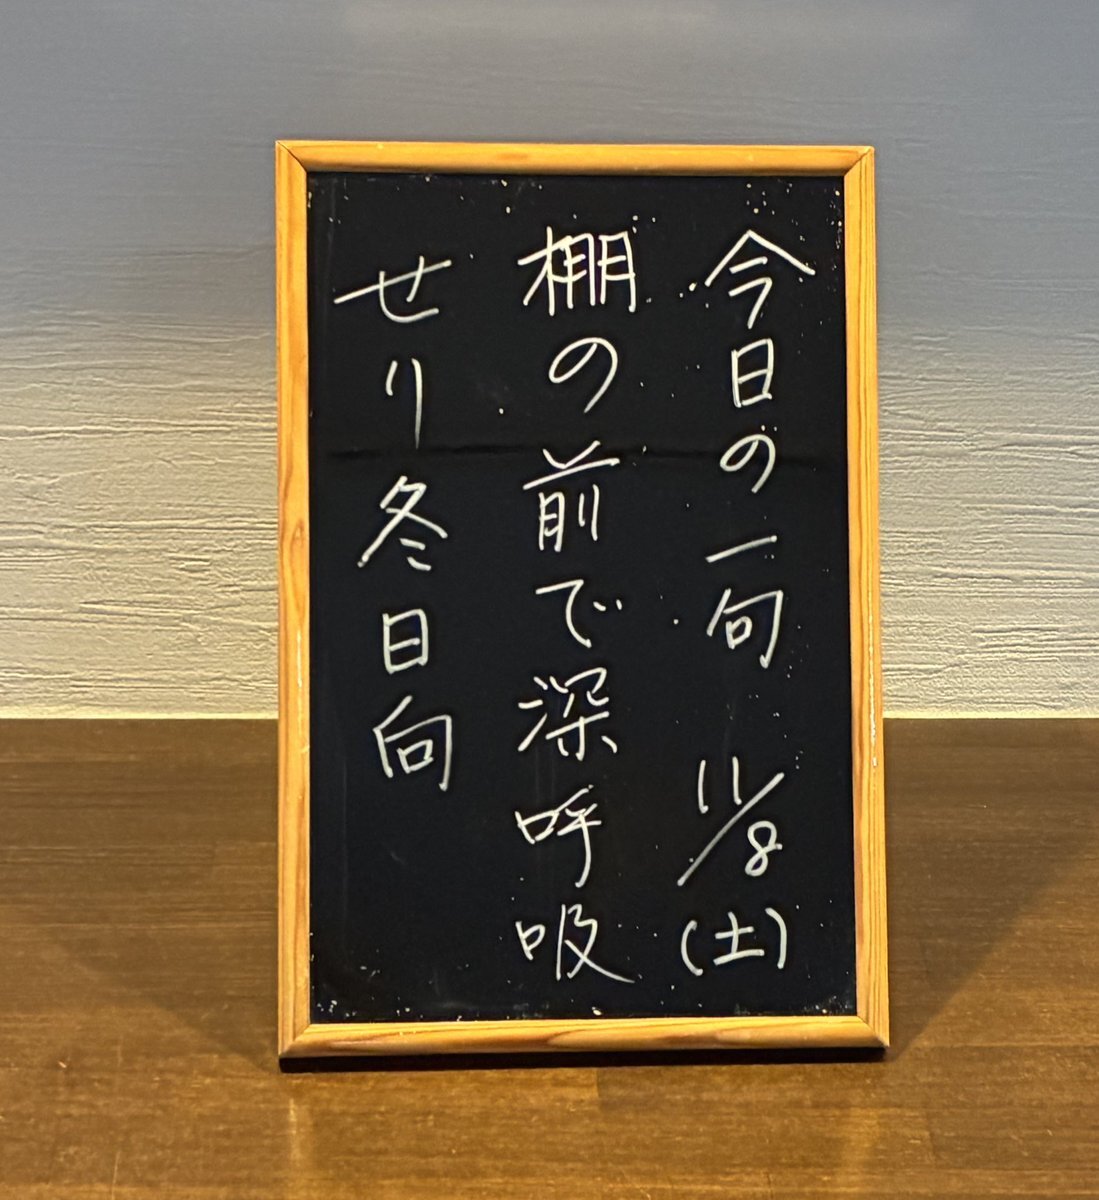 今日の一句 11/8(土)
棚の前で深呼吸
せり冬日向